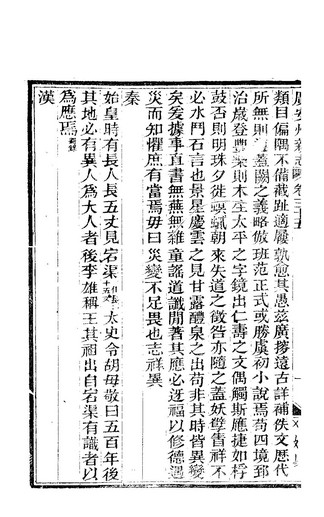 類目偏隅不備截趾適屨孰愈其愚茲廣搜遠古詳補佚文歷代
所無則蓋闕之義略倣班范正式或勝虞初小說焉苟四境郅
治歲登豐樂則木生太平之字鏡出仁壽之文偶觸斯應捷如桴
鼓否則明珠夕徙朝來失道之徵咎亦隨之蓋妖孽眚祥不
必水鬥石言也景星慶雲之見甘露醴泉之出苟非其時皆異變
矣爰據事直書無蕪無雜童謠道讖間著其應必迓福以修德遇
災而知懼庶有當焉毋曰災變不足畏也志祥異
秦
始皇時有長人長五丈見宕渠太史令胡毋敬曰五百年後
其地必有異人為大人者後李雄稱王其祖出自宕渠有識者以
為應焉
漢